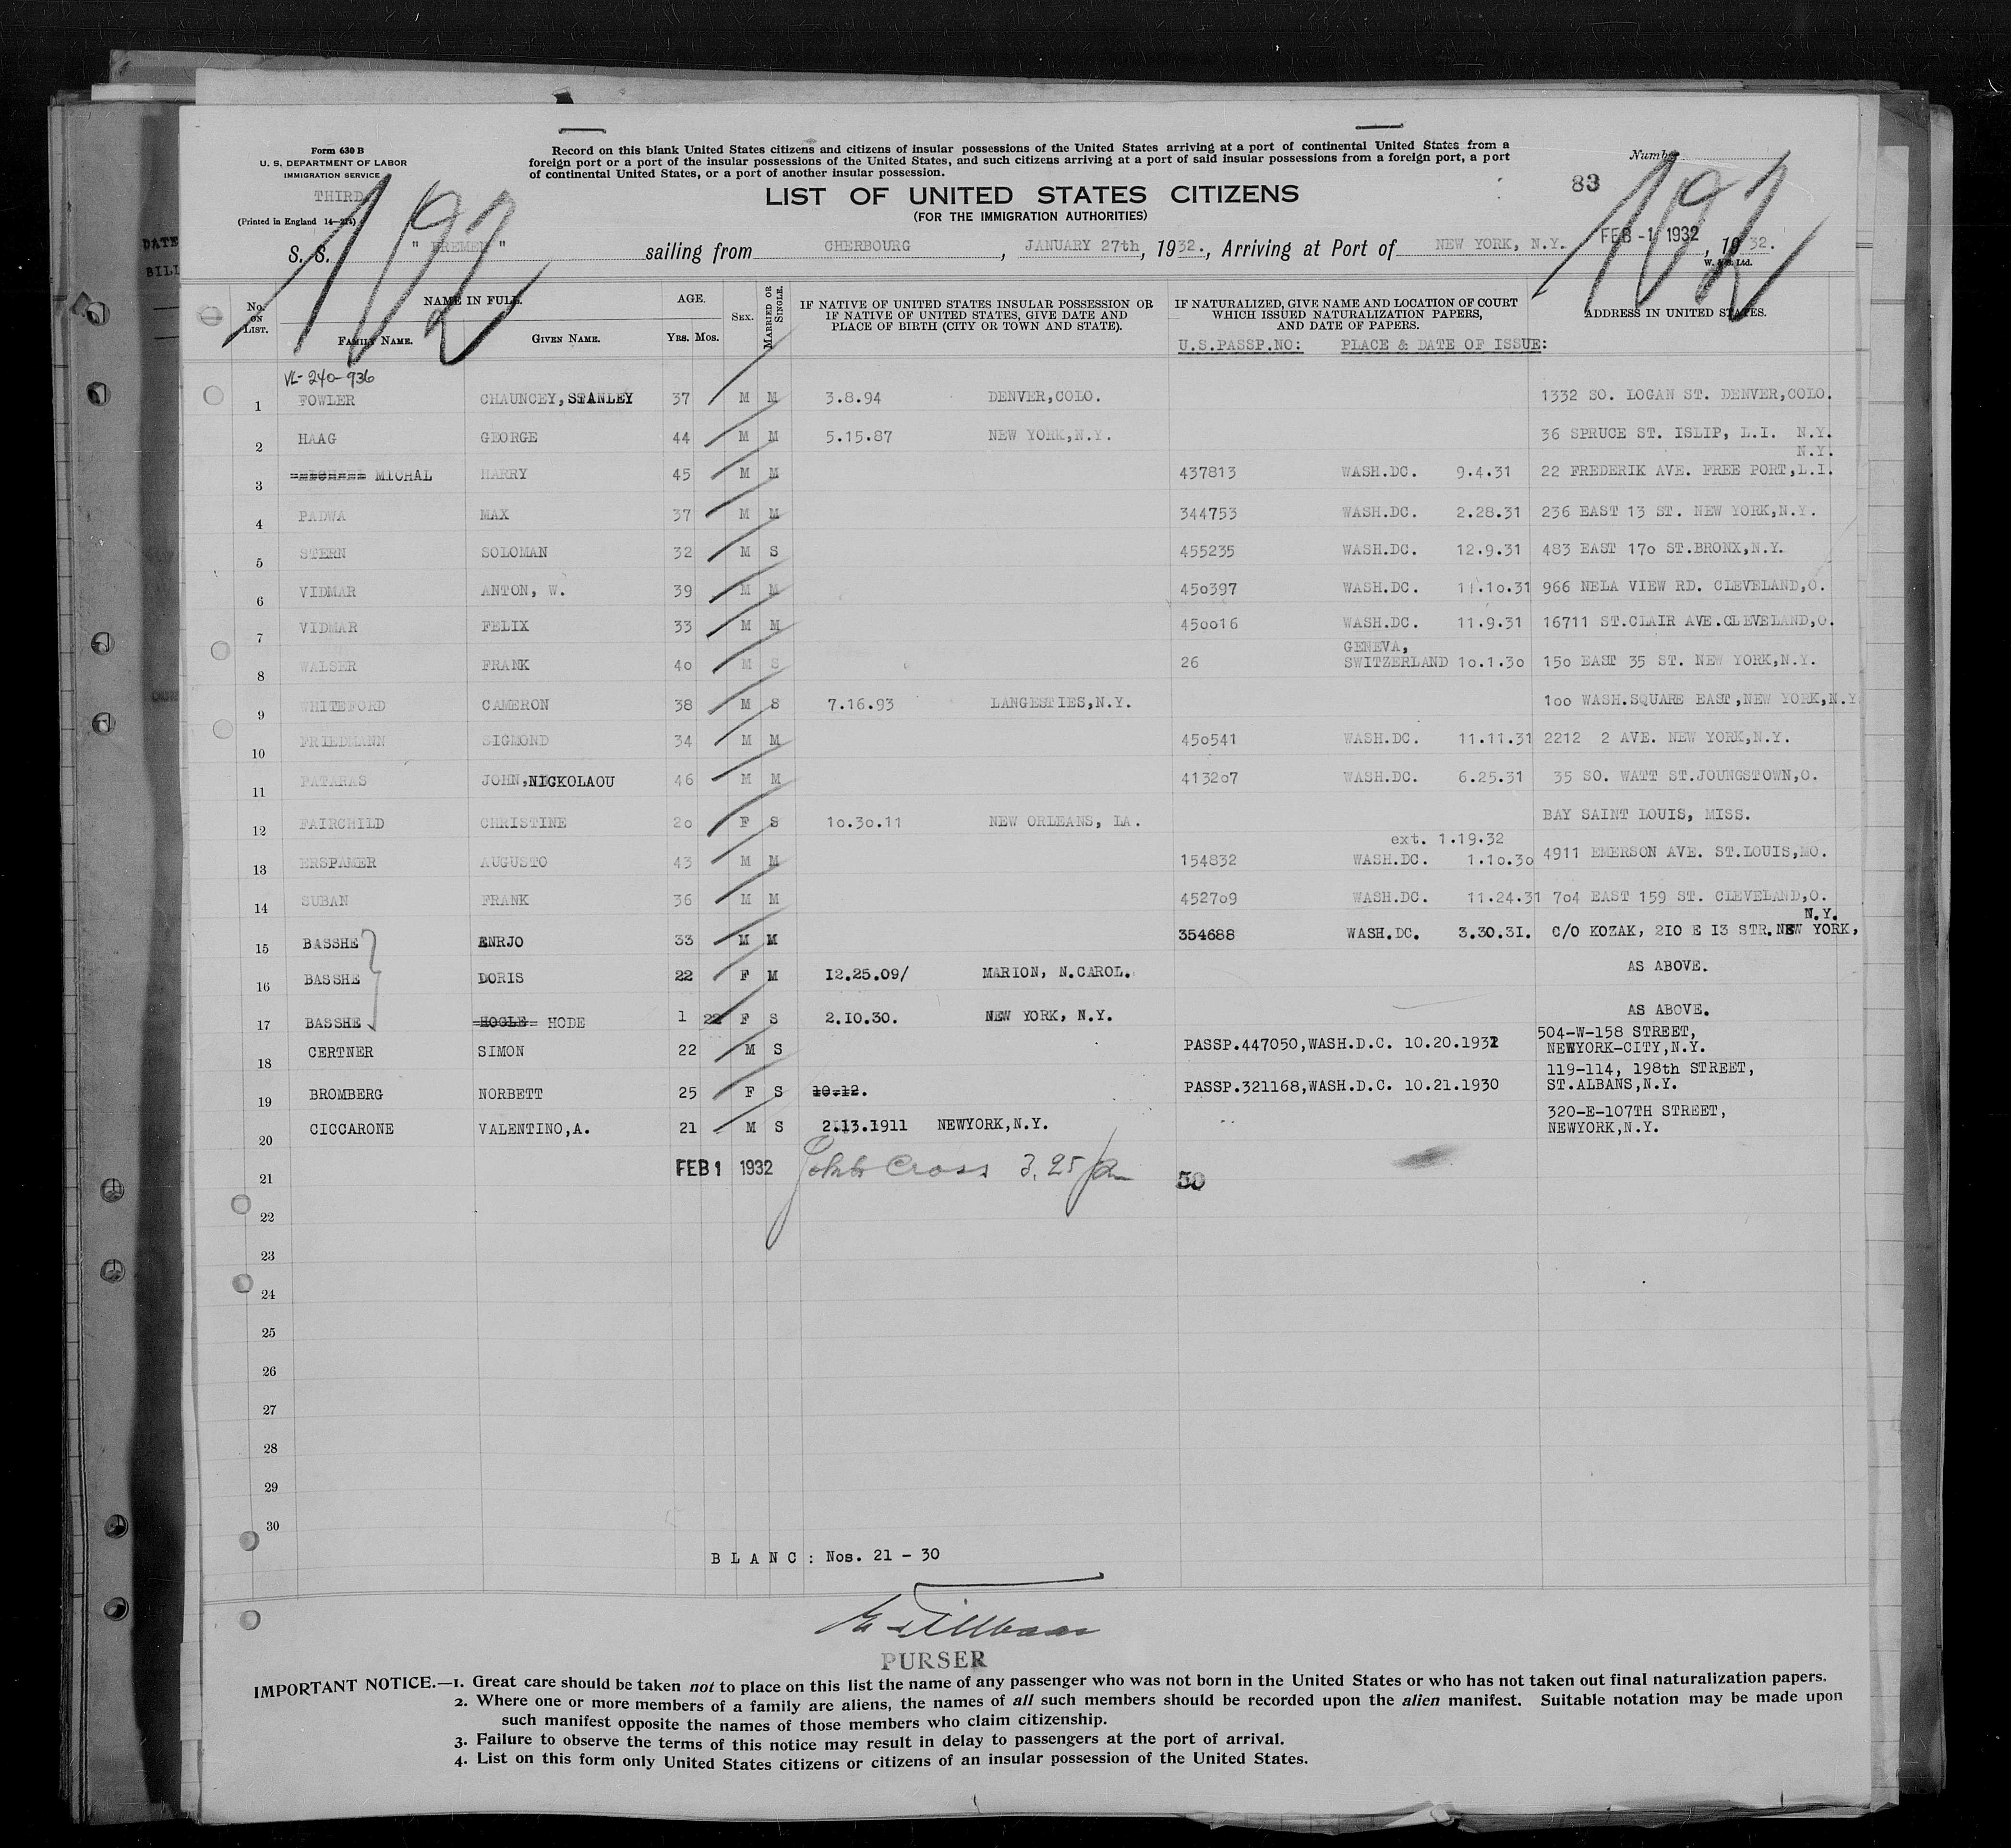 DATE
BILL
Form 630 B
U. S. DEPARTMENT OF LABOR
IMMIGRATION SERVICE
THIRD
(Printed in England 14—211)
Record on this blank United States citizens and citizens of insular possessions of the United States arriving at a port of continental United States from a
foreign port or a port of the insular possessions of the United States, and such citizens arriving at a port of said insular possessions from a foreign port, a port
of continental United States, or a port of another insular possession.
LIST OF UNITED STATES CITIZENS
(FOR THE IMMIGRATION AUTHORITIES)
Number
83
192
192
S. S. " BREMEN " sailing from CHERBOURG, JANUARY 27th, 1932., Arriving at Port of NEW YORK, N.Y. FEB -1 1932, 1932.
W. & S. Ltd.
No. ON LIST.
NAME IN FULL.
FAMILY NAME. GIVEN NAME.
AGE.
Yrs. Mos.
SEX.
MARRIED OR SINGLE.
IF NATIVE OF UNITED STATES INSULAR POSSESSION OR
IF NATIVE OF UNITED STATES, GIVE DATE AND
PLACE OF BIRTH (CITY OR TOWN AND STATE).
IF NATURALIZED, GIVE NAME AND LOCATION OF COURT
WHICH ISSUED NATURALIZATION PAPERS,
AND DATE OF PAPERS.
U.S.PASSP.NO: PLACE & DATE OF ISSUE:
ADDRESS IN UNITED STATES.
VL-240-936
1 FOWLER CHAUNCEY,STANLEY 37 M M 3.8.94 DENVER,COLO. 1332 SO. LOGAN ST. DENVER,COLO.
2 HAAG GEORGE 44 M M 5.15.87 NEW YORK,N.Y. 36 SPRUCE ST. ISLIP, L.I. N.Y.
N.Y.
3 MICHAEL MICHAL HARRY 45 M M 437813 WASH.DC. 9.4.31 22 FREDERIK AVE. FREE PORT,L.I.
4 PADWA MAX 37 M M 344753 WASH.DC. 2.28.31 236 EAST 13 ST. NEW YORK,N.Y.
5 STERN SOLOMAN 32 M S 455235 WASH.DC. 12.9.31 483 EAST 17o ST.BRONX,N.Y.
6 VIDMAR ANTON, W. 39 M M 45o397 WASH.DC. 11.1o.31 966 NELA VIEW RD. CLEVELAND,O.
7 VIDMAR FELIX 33 M M 45oo16 WASH.DC. 11.9.31 16711 ST.CLAIR AVE.CLEVELAND,O.
GENEVA,
8 WALSER FRANK 4o M S 26 SWITZERLAND 1o.1.3o 15o EAST 35 ST. NEW YORK,N.Y.
9 WHITEFORD CAMERON 38 M S 7.16.93 LANGESTIES,N.Y. 1oo WASH.SQUARE EAST,NEW YORK,N.Y
10 FRIEDMANN SIGMOND 34 M M 45o541 WASH.DC. 11.11.31 2212 2 AVE. NEW YORK,N.Y.
11 PATARAS JOHN,NICKOLAOU 46 M M 4132o7 WASH.DC. 6.25.31 35 SO. WATT ST.JOUNGSTOWN,O.
12 FAIRCHILD CHRISTINE 2o F S 1o.3o.11 NEW ORLEANS, LA. BAY SAINT LOUIS, MISS.
ext. 1.19.32
13 ERSPAMER AUGUSTO 43 M M 154832 WASH.DC. 1.1o.3o 4911 EMERSON AVE. ST.LOUIS,MO.
14 SUBAN FRANK 36 M M 4527o9 WASH.DC. 11.24.31 7o4 EAST 159 ST. CLEVELAND,O.
N.Y.
15 BASSHE ENRJO 33 M M 354688 WASH.DC. 3.30.3I. C/O KOZAK, 2IO E I3 STR.NEW YORK,
16 BASSHE DORIS 22 F M I2.25.09/ MARION, N.CAROL. AS ABOVE.
17 BASSHE HOGLE HODE 1 22 F S 2.IO.30. NEW YORK, N.Y. AS ABOVE.
18 CERTNER SIMON 22 M S PASSP.447050,WASH.D.C. 10.20.1931 504-W-158 STREET,
NEWYORK-CITY,N.Y.
19 BROMBERG NORBETT 25 F S 10.12. PASSP.321168,WASH.D.C. 10.21.1930 119-114, 198th STREET,
ST.ALBANS,N.Y.
20 CICCARONE VALENTINO,A. 21 M S 2.13.1911 NEWYORK,N.Y. 320-E-107TH STREET,
NEWYORK,N.Y.
21 FEB 1 1932 Cross 3.25 50
22
23
24
25
26
27
28
29
30
B L A N C : Nos. 21 - 30
PURSER
IMPORTANT NOTICE.—1. Great care should be taken not to place on this list the name of any passenger who was not born in the United States or who has not taken out final naturalization papers.
2. Where one or more members of a family are aliens, the names of all such members should be recorded upon the alien manifest. Suitable notation may be made upon
such manifest opposite the names of those members who claim citizenship.
3. Failure to observe the terms of this notice may result in delay to passengers at the port of arrival.
4. List on this form only United States citizens or citizens of an insular possession of the United States.